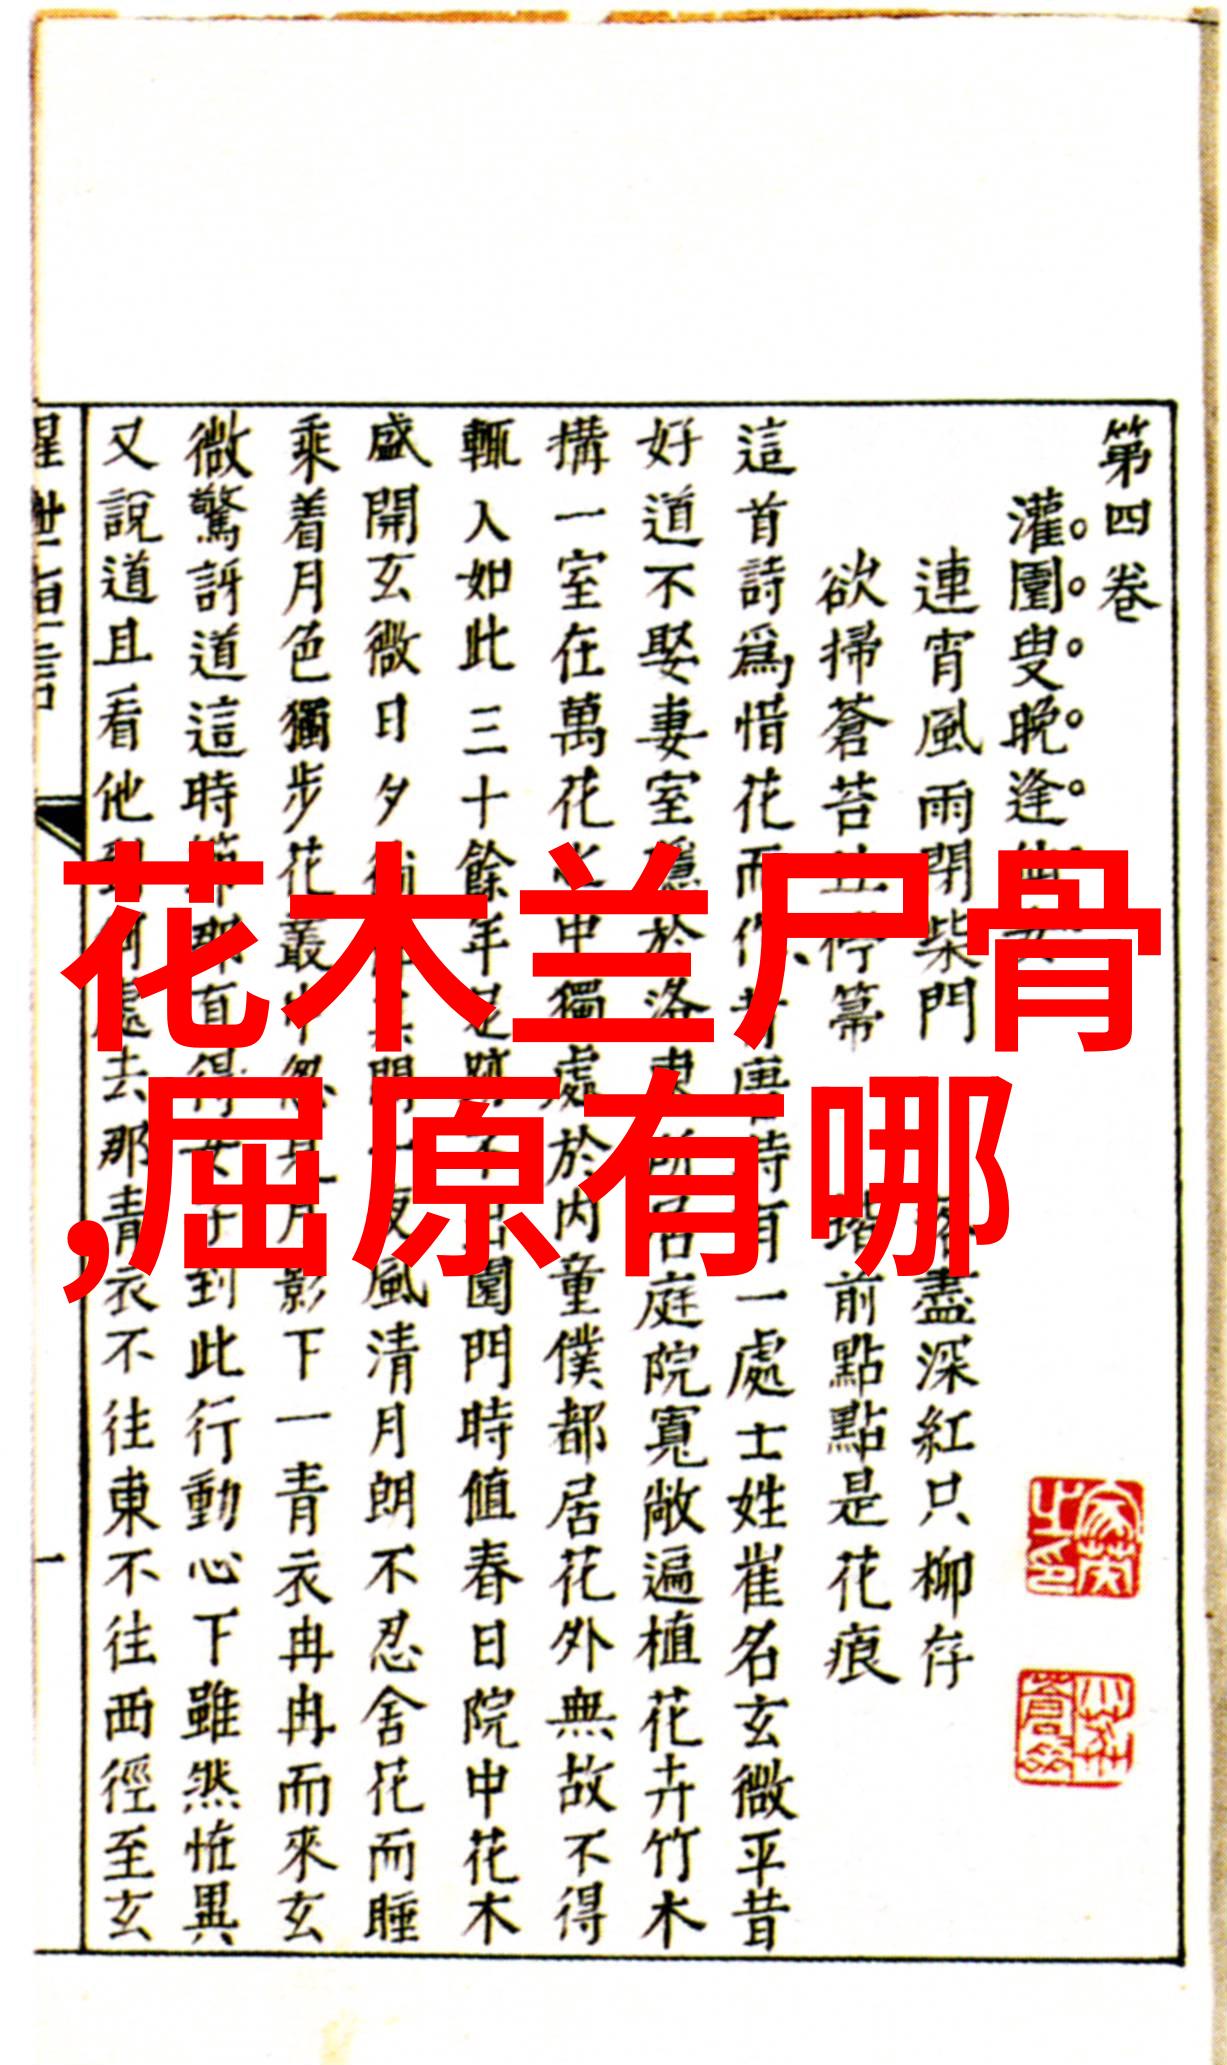 第四卷
灌園叟晚逢
連宵風雨閉柴門
盡深紅只柳存
欲掃蒼苔且停帚
階前點點是花痕
這首詩爲惜花而作昔唐時有一處士姓崔名玄微平昔
好道不娶妻室隱於洛東所居庭院寬敞遍植花卉竹木
搆一室在萬花之中獨處於內童僕都居花外無故不得
輒入如此三十餘年足跡不出園門時值春日院中花木
盛開玄微日夕
夜風清月朗不忍舍花而睡
乘着月色獨步花叢中忽見月影下一青衣冉冉而來玄
微驚訝道這時節那有得女子到此行動心下雖然恠異
又說道且看他到何處去那青衣不往東不往西徑至玄
醒世恒言
一
花木兰尸骨
,屈原有哪